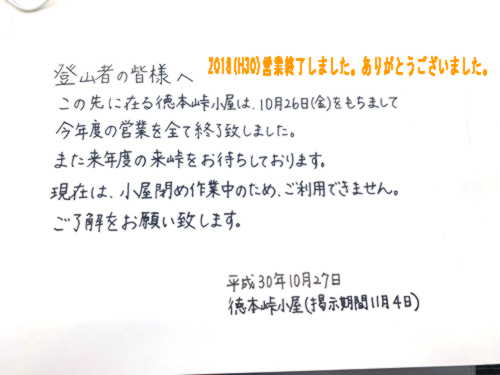 2018(H30)営業終了しました。ありがとうございました。
登山者の皆様へ
この先に在る徳本峠小屋は、10月26日(金)をもちまして
今年度の営業を全て終了致しました。
また来年度の来峠をお待ちしております。
現在は、小屋閉め作業中のため、ご利用できません。
ご了解をお願い致します。
平成30年10月27日
徳本峠小屋(掲示期間11月4日)